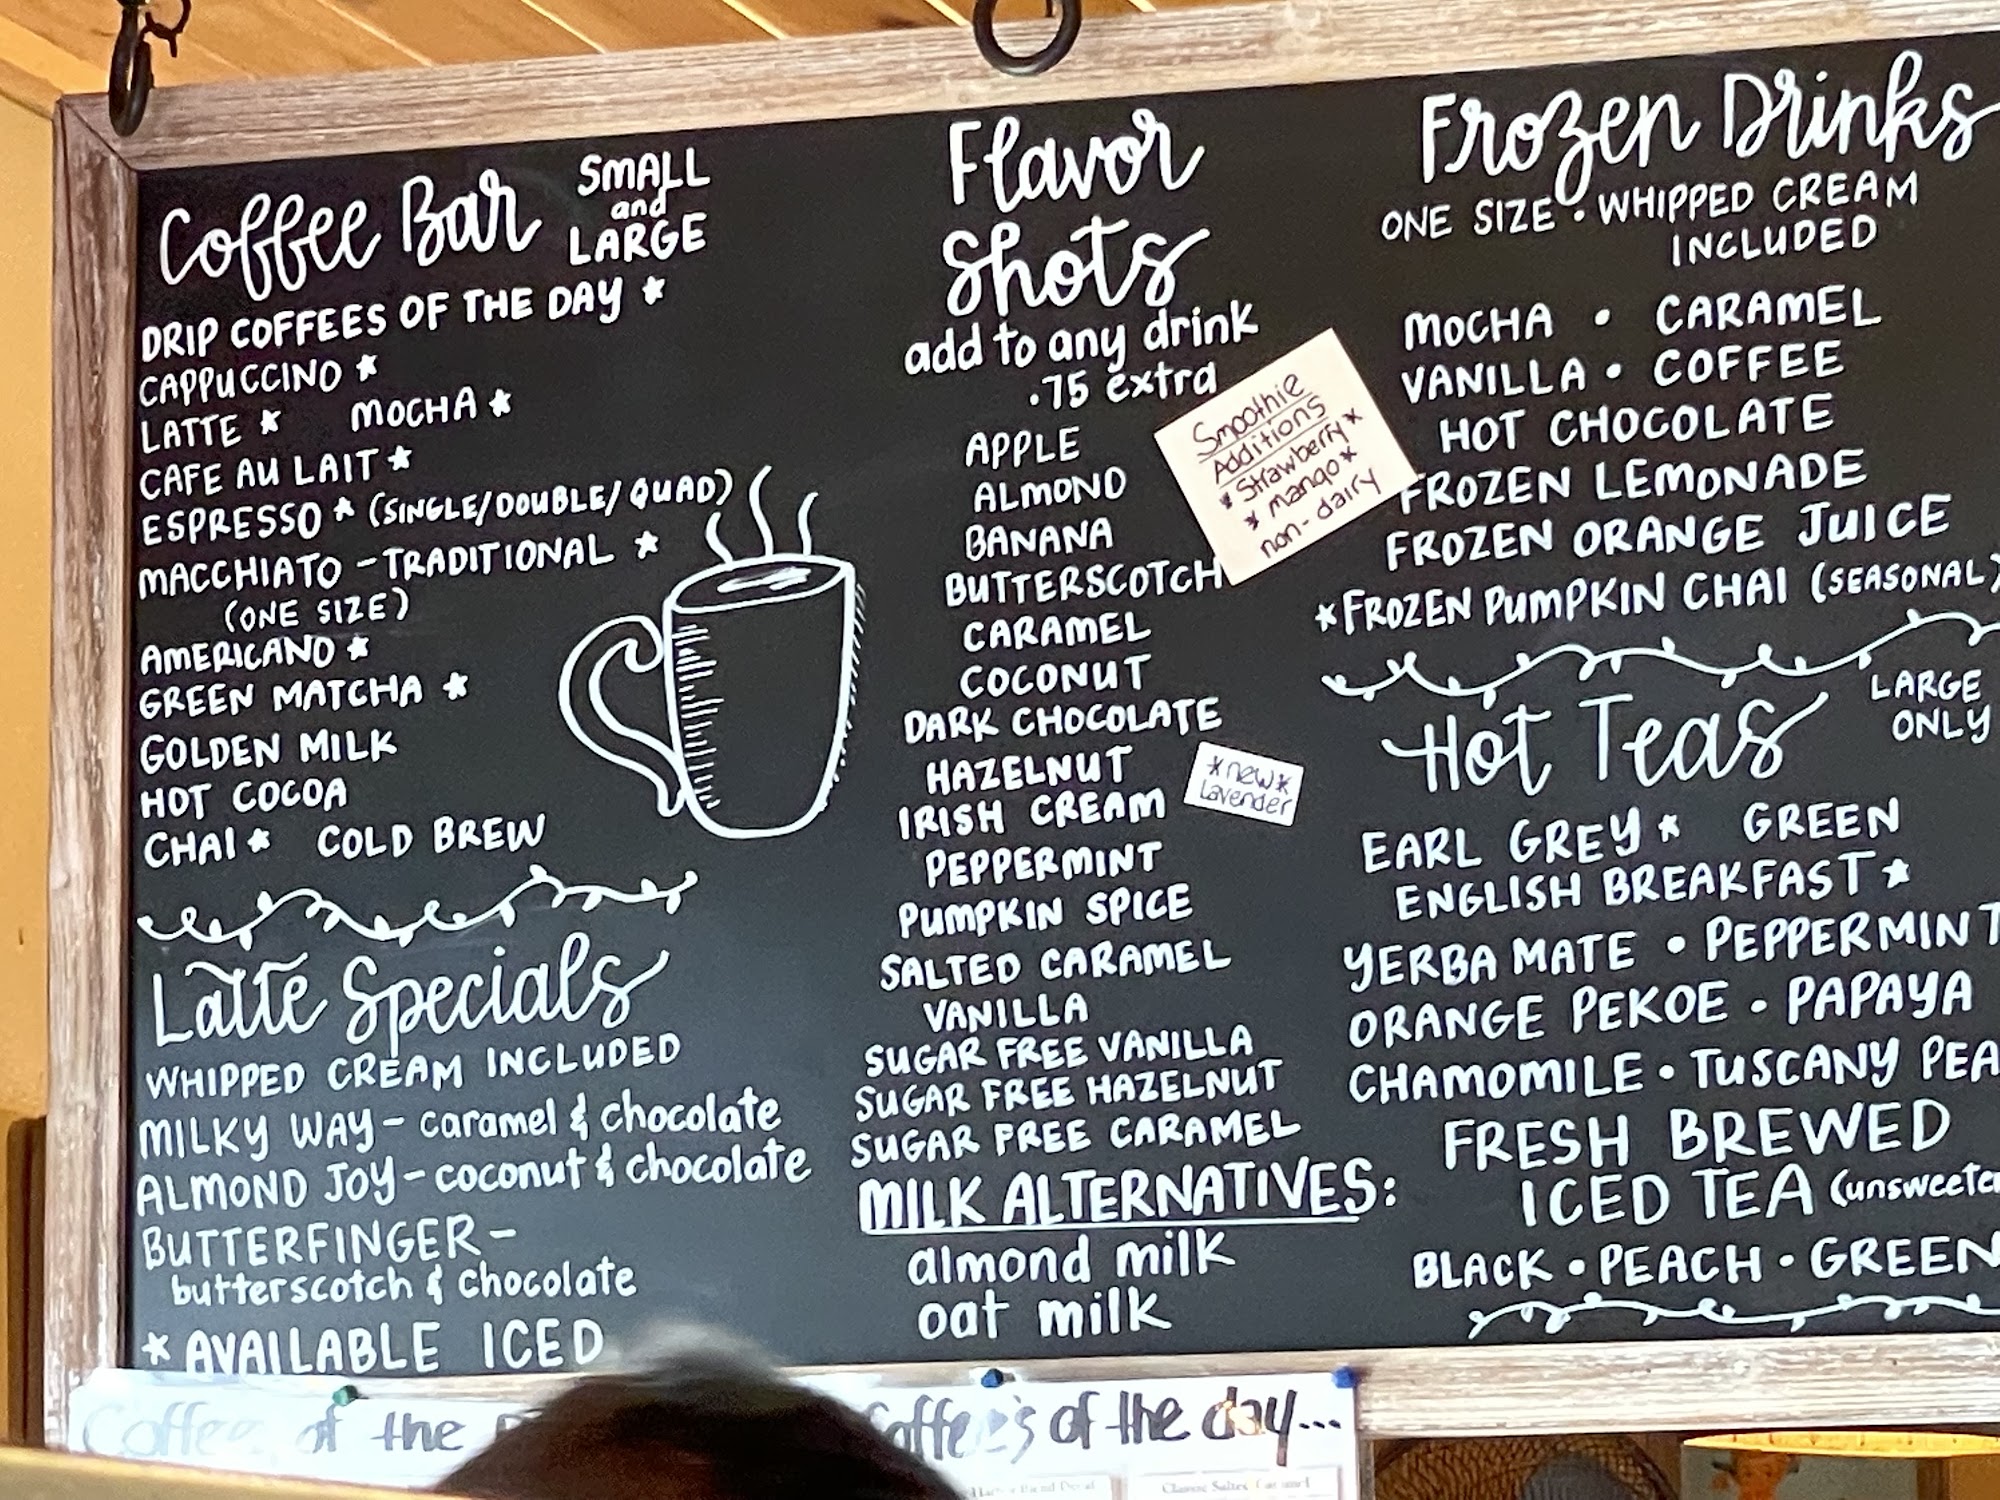 Coffee Bar SMALL and LARGE
DRIP COFFEES OF THE DAY *
CAPPUCCINO *
LATTE * MOCHA *
CAFE AU LAIT *
ESPRESSO * (SINGLE/DOUBLE/QUAD)
MACCHIATO - TRADITIONAL *
(ONE SIZE)
AMERICANO *
GREEN MATCHA *
GOLDEN MILK
HOT COCOA
CHAI * COLD BREW
Latte Specials
WHIPPED CREAM INCLUDED
MILKY WAY - caramel & chocolate
ALMOND JOY - coconut & chocolate
BUTTERFINGER -
butterscotch & chocolate
* AVAILABLE ICED
Flavor
Shots
add to any drink
.75 extra
APPLE
ALMOND
BANANA
BUTTERSCOTCH
CARAMEL
COCONUT
DARK CHOCOLATE
HAZELNUT
IRISH CREAM
PEPPERMINT
PUMPKIN SPICE
SALTED CARAMEL
VANILLA
SUGAR FREE VANILLA
SUGAR FREE HAZELNUT
SUGAR FREE CARAMEL
MILK ALTERNATIVES:
almond milk
oat milk
Smoothie
Additions
* Strawberry *
* mango *
non-dairy
*new*
Lavender
Frozen Drinks
ONE SIZE • WHIPPED CREAM
INCLUDED
MOCHA • CARAMEL
VANILLA • COFFEE
HOT CHOCOLATE
FROZEN LEMONADE
FROZEN ORANGE JUICE
*FROZEN PUMPKIN CHAI (SEASONAL)
Hot Teas LARGE
ONLY
EARL GREY * GREEN
ENGLISH BREAKFAST *
YERBA MATE • PEPPERMINT
ORANGE PEKOE • PAPAYA
CHAMOMILE • TUSCANY PEA
FRESH BREWED
ICED TEA (unsweete
BLACK • PEACH • GREEN
Coffee of the
Coffee's of the day...